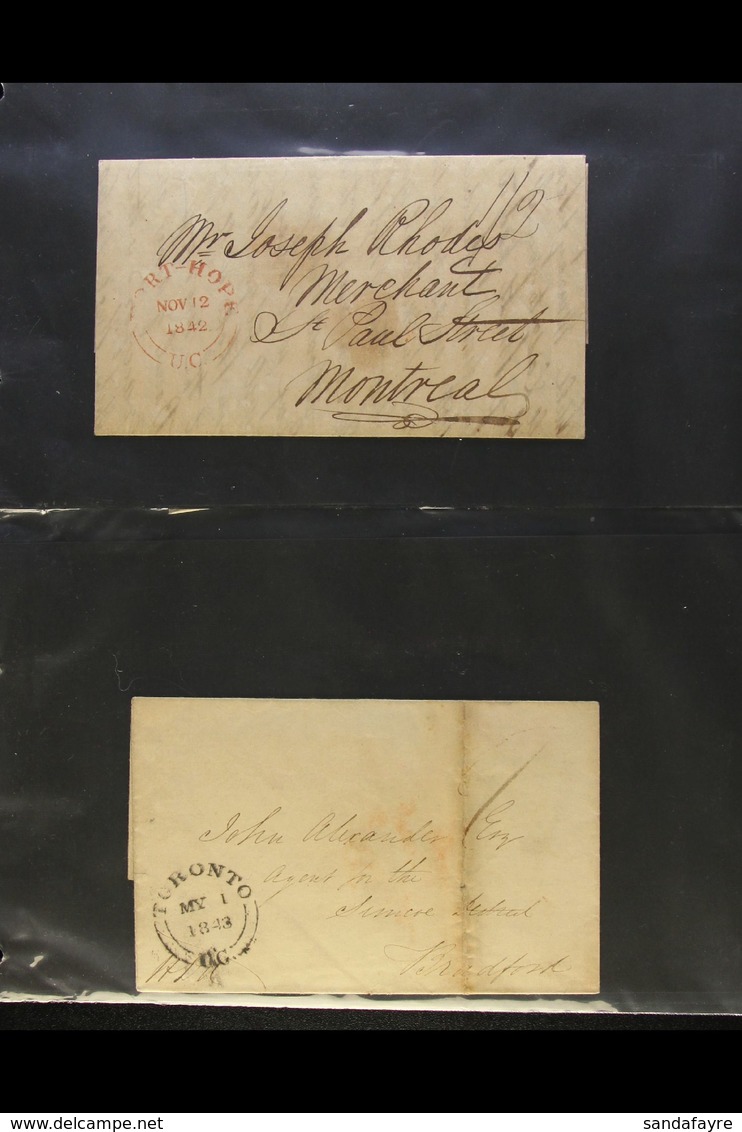 1/2
Mr Joseph Rhodes
Merchant
St Paul Street
Montreal
PORT-HOPE
NOV 12
1842
U.C.
John Alexander Esq
Agent for the
Simcoe District
Bradford
TORONTO
MY 1
1843
U.C.
delcampe.net
sandafayre